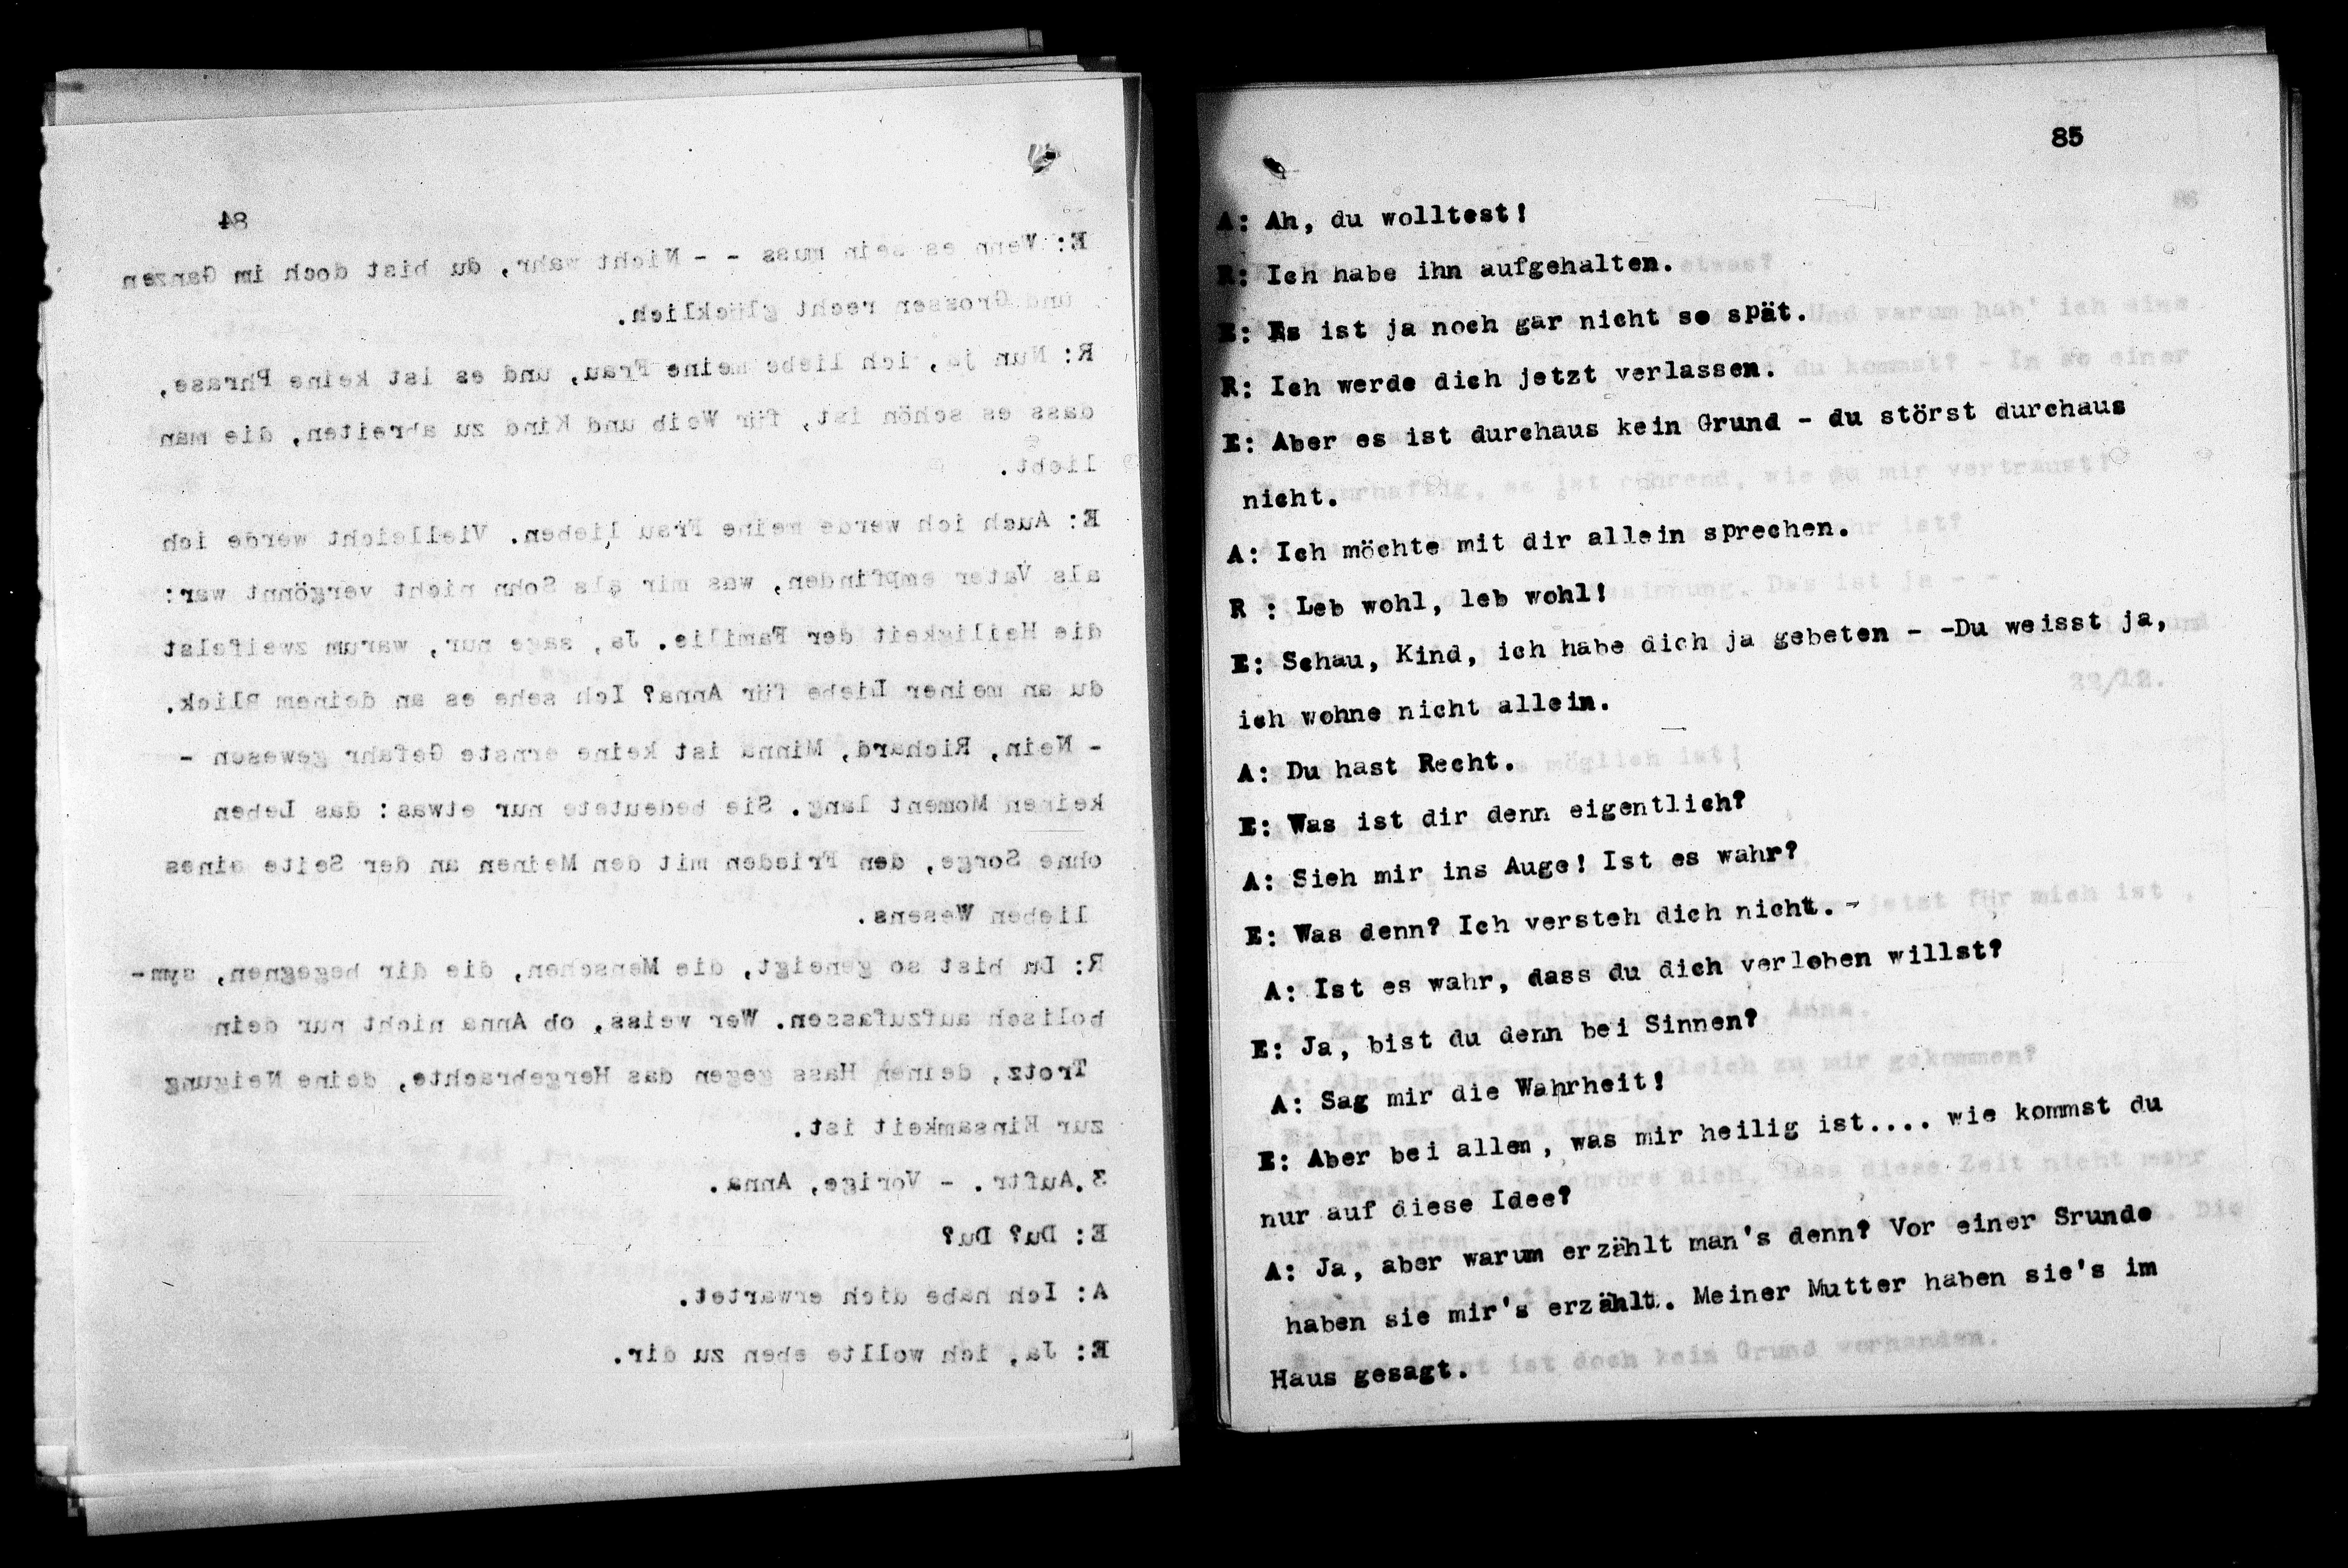 84
E: Wenn es sein muss - - Nicht wahr, du bist doch im Ganzen
und Grossen recht glücklich.
R: Nun ja, ich liebe meine Frau, und es ist keine Phrase,
dass es schön ist, für Weib und Kind zu abreiten, die man
liebt.
E: Auch ich werde meine Frau lieben. Vielleicht werde ich
als Vater empfinden, was mir als Sohn nicht vergönnt war:
die Heiligkeit der Familie. Ja, sage nur, warum zweifelst
du an meiner Liebe für Anna? Ich sehe es an deinem Blick.
- Nein, Richard, Minna ist keine ernste Gefahr gewesen -
keinen Moment lang. Sie bedeutete nur etwas: das Leben
ohne Sorge, den Frieden mit den Meinen an der Seite eines
lieben Wesens.
R: Du bist so geneigt, die Menschen, die dir begegnen, sym-
bolisch aufzufassen. Wer weiss, ob Anna nicht nur dein
Trotz, deinen Hass gegen das Hergebrachte, deine Neigung
zur Einsamkeit ist.
3.Auftr. - Vorige, Anna.
E: Du? Du?
A: Ich habe dich erwartet.
E: Ja, ich wollte eben zu dir.
85
A: Ah, du wolltest!
R: Ich habe ihn aufgehalten.
E: Es ist ja noch gar nicht so spät.
R: Ich werde dich jetzt verlassen.
E: Aber es ist durchaus kein Grund - du störst durchaus
nicht.
A: Ich möchte mit dir allein sprechen.
R : Leb wohl, leb wohl!
E: Schau, Kind, ich habe dich ja gebeten - -Du weisst ja,
ich wohne nicht allein.
A: Du hast Recht.
E: Was ist dir denn eigentlich?
A: Sieh mir ins Auge! Ist es wahr?
E: Was denn? Ich versteh dich nicht. -
A: Ist es wahr, dass du dich verloben willst?
E: Ja, bist du denn bei Sinnen?
A: Sag mir die Wahrheit!
E: Aber bei allen, was mir heilig ist.... wie kommst du
nur auf diese Idee?
A: Ja, aber warum erzählt man's denn? Vor einer Srunde
haben sie mir's erzählt. Meiner Mutter haben sie's im
Haus gesagt.